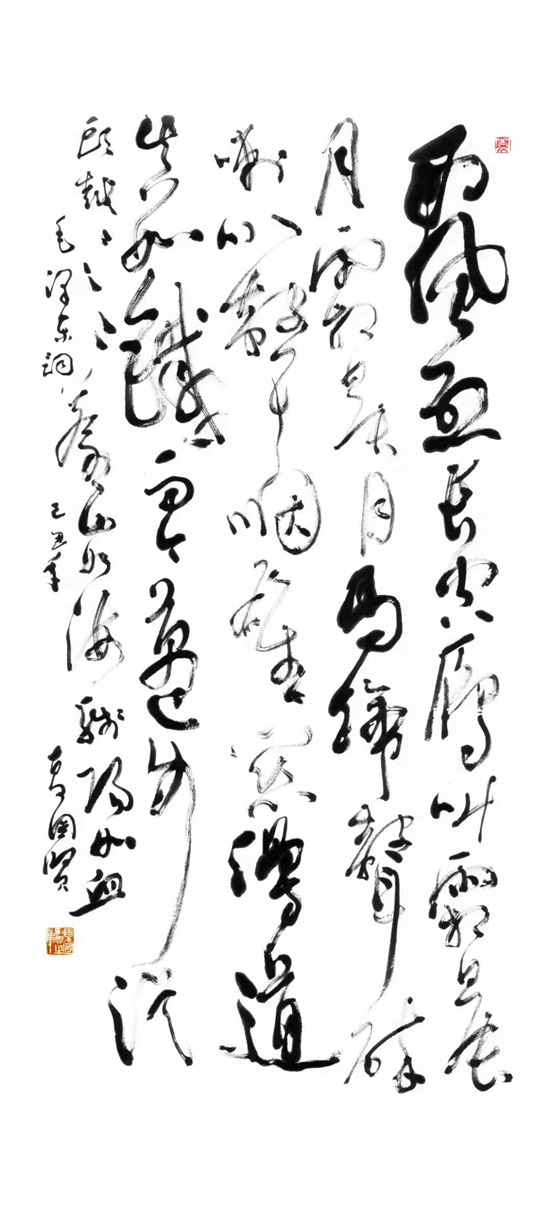 西風烈長空雁叫霜晨
月霜晨月馬蹄聲碎
喇叭聲咽雄關漫道
真如鐵而今邁步從
頭越〻〻〻蒼山如海殘陽如血
毛澤東詞 己丑年 國賢